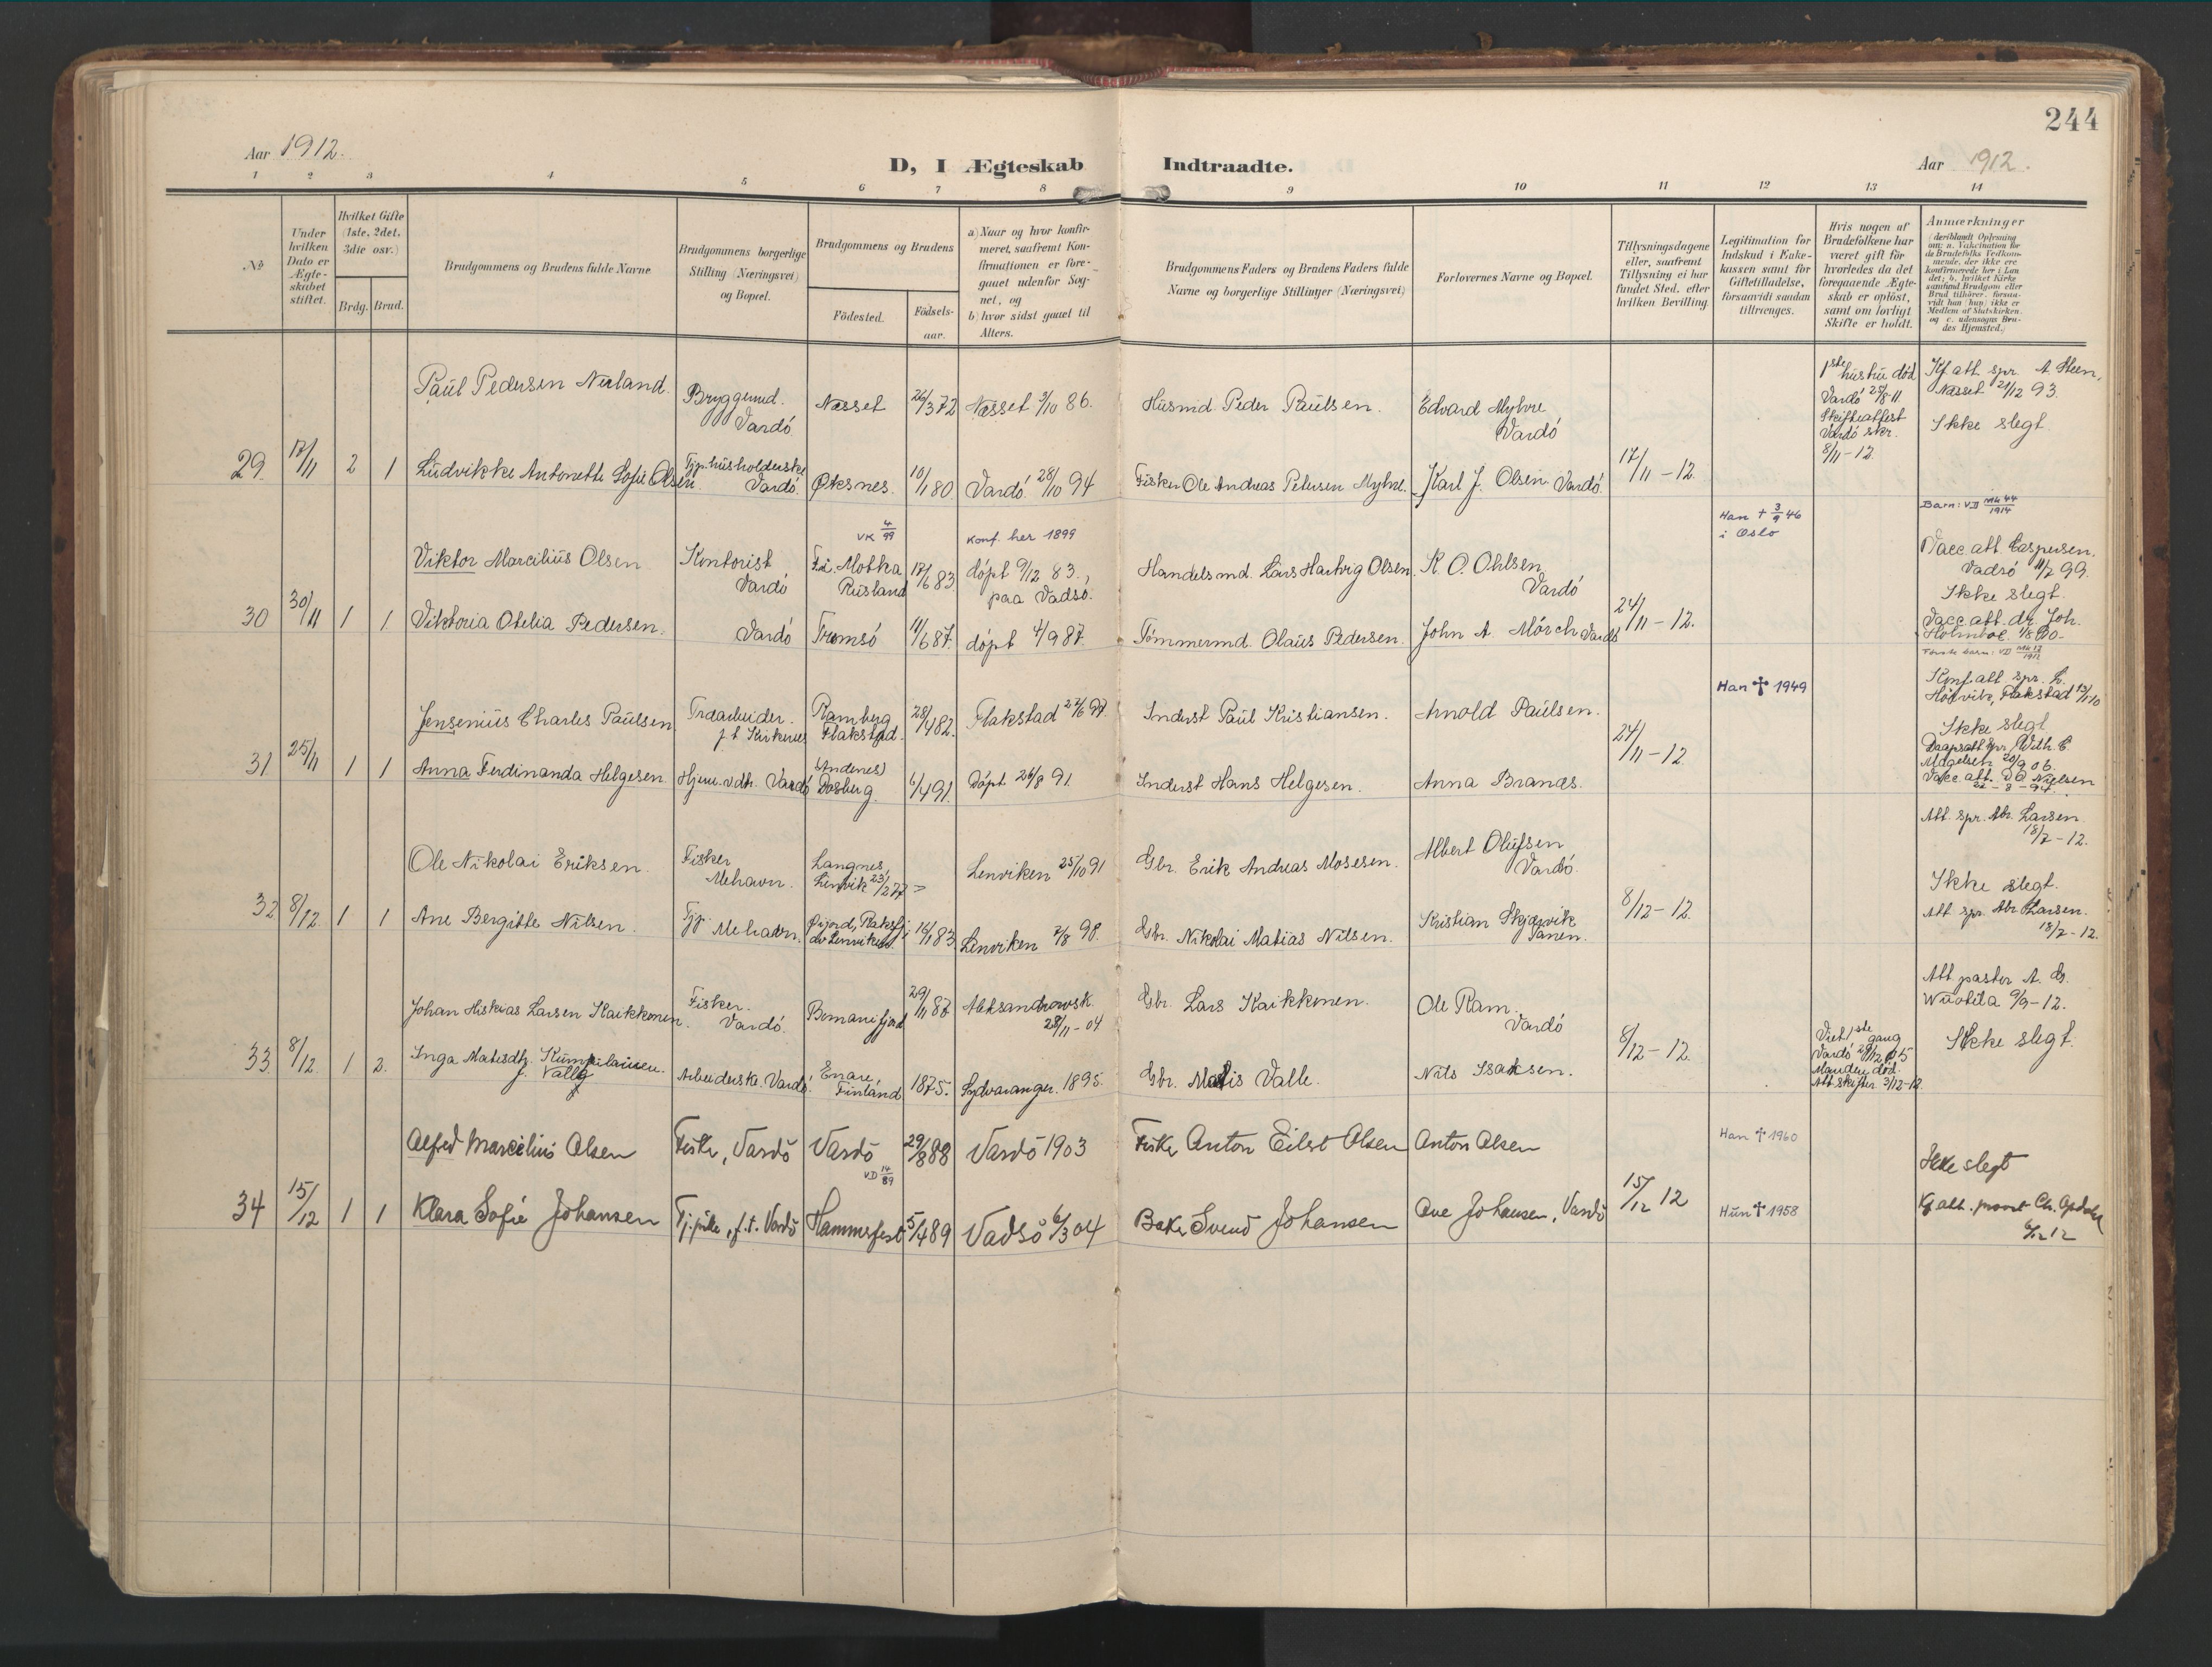 244
Aar 1912.
D, I Ægteskab Indtraadte.
Aar 1912.
1 2 3 4 5 6 7 8 9 10 11 12 13 14
No
Under hvilken Dato er Ægteskabet stiftet.
Hvilket Gifte (1ste, 2det, 3die osv.)
Brdg. Brud.
Brudgommens og Brudens fulde Navne
Brudgommens borgerlige Stilling (Næringsvei) og Bopæl.
Brudgommens og Brudens
Fødested. Fødselsaar.
a) Naar og hvor konfirmeret, saafremt Konfirmationen er foregaaet udenfor Sognet, og
b) hvor sidst gaaet til Alters.
Brudgommens Faders og Brudens Faders fulde Navne og borgerlige Stillinger (Næringsvei)
Forlovernes Navne og Bopæl.
Tillysningsdagene eller, saafremt Tillysning ei har fundet Sted, efter hvilken Bevilling
Legitimation for Indskud i Enkekassen samt for Giftetilladelse, forsaavidt saadan tiltrænges.
Hvis nogen af Brudefolkene har været gift før hvorledes da det foregaaende Ægteskab er opløst, samt om lovligt Skifte er holdt.
Anmærkninger
(deriblandt Oplysning om: a. Vakcination for de Brudefolks Vedkommende, der ikke ere konfirmerede her i Landet; b. hvilket Kirkesamfund Brudgom eller Brud tilhører, forsaavidt han (hun) ikke er Medlem af Statskirken, og c. udensogns Brudes Hjemsted.)
Paul Pedersen Nerland.
Bryggemd. Vardó
Nesset 26/3 72 Nesset 3/10 86.
Husmd. Peder Paulsen.
Edvard Myhre Vardó
1ste hustru død Vardó 25/8-11. Skifteattest Vardó skr. 8/11-12.
Kf att spr. A. Steen, Nesset 21/12 93.
Ikke slegt.
29. 17/11 2 1 Ludvikke Antonette Sofie Olsen
Tjp. husholderske Vardó.
Øksnes. 10/1 80 Vardó 28/10 94
Fisker Ole Andreas Petersen Myhre.
Karl J. Olsen. Vardó.
17/11-12.
VK 4/99 Konf. her 1899
Han † 3/9 46 i Oslo
Barn: VD 44/1914
Viktor Marcilius Olsen
Kontorist Vardó
Motka Rusland 17/6 83. dópt 9/12 83., paa Vadsó.
Handelsmd. Lars Hartvig Olsen.
K. O. Ohlsen Vardó
Vacc att. Caspersen. Vadsó 11/7 99.
Ikke slegt.
30 30/11 1 1 Viktoria Otelia Pedersen.
Vardó Tromsó 11/6 87. dópt 4/9 87.
Tömmermd. Olaus Pedersen.
John A. Mórch Vardó
24/11-12.
Vacc. att. dr. Joh. Holmboe. 1/8 90.
Første barn: VD 1912
Han † 1949
Jensenius Charles Paulsen
Træarbeider. f. t. Kirkenes
Ramberg, Flakstad. 28/4 82. Flakstad 27/6 97.
Inderst Paul Kristiansen.
Arnold Paulsen.
Konf. att spr. L. Flakstad 13/11-10
Ikke slegt
31 25/11 1 1 Anna Ferdinanda Helgesen
Hjem. v. dtr. Vardó
(Andenes) Dverberg. 6/4 91. Dópt 26/8 91.
Inderst Hans Helgesen.
Anna Brandes.
24/11-12.
Daapsatt. spr. Wilh. C Magelsen 20/9 06.
Vacc. att. D. O. Nielsen 22-8-94.
Ole Nikolai Eriksen.
Fisker Mehavn.
Langnes, Lenvik 23/2 77
Lenviken 25/10 91
Gbr. Erik Andreas Mosesen.
Albert Olufsen Vardó.
Att. spr. Abr. Larsen. 18/7-12.
Ikke slegt.
32 8/12. 1 1 Ane Bergitte Nilsen.
Tjp. Mehavn.
Lenviken. 16/1 83. Lenviken 7/8 98.
Gbr. Nikolai Matias Nilsen.
Kristian Skjervik Tanen.
8/12-12.
Att spr. Abr. Larsen. 18/7-12.
Johan Hiskias Larsen Kaikkonen.
Fisker. Vardó.
Bomanifjord 29/11 87 Aleksandrowsk. 28/11-04
Gbr. Lars Kaikkonen.
Ole Ram. Vardó
Att pastor A. G. Wuotila 9/9-12.
33. 8/12. 1 2. Inga Matisdtr. Kumpulainen. f. Valle
Arbeiderske. Vardó.
Enare, Finland 1875. Sydvaranger. 1895.
Gbr. Matis Valle.
Nils Isaksen.
8/12-12.
Viet 1ste gang Vardó 29/12 05 Manden död. Att. skifter. 3/12-12.
Ikke slegt.
Alfred Marcelius Olsen
Fisker, Vardö
Vardö 29/8 88 Vardö 1903
VD 14/89
Fisker Anton Eilert Olsen
Anton Olsen
Han † 1960
Ikke slegt
34 15/12 1 1 Klara Sofie Johansen
Tj. pike, f. t. Vardö
Hammerfest 5/4 89 Vadsö 6/3 04
Baker Svend Johansen
Ove Johansen, Vardö
15/12 12
Hun † 1958
Kf att. provst Ch. Opdahl 6/12 12